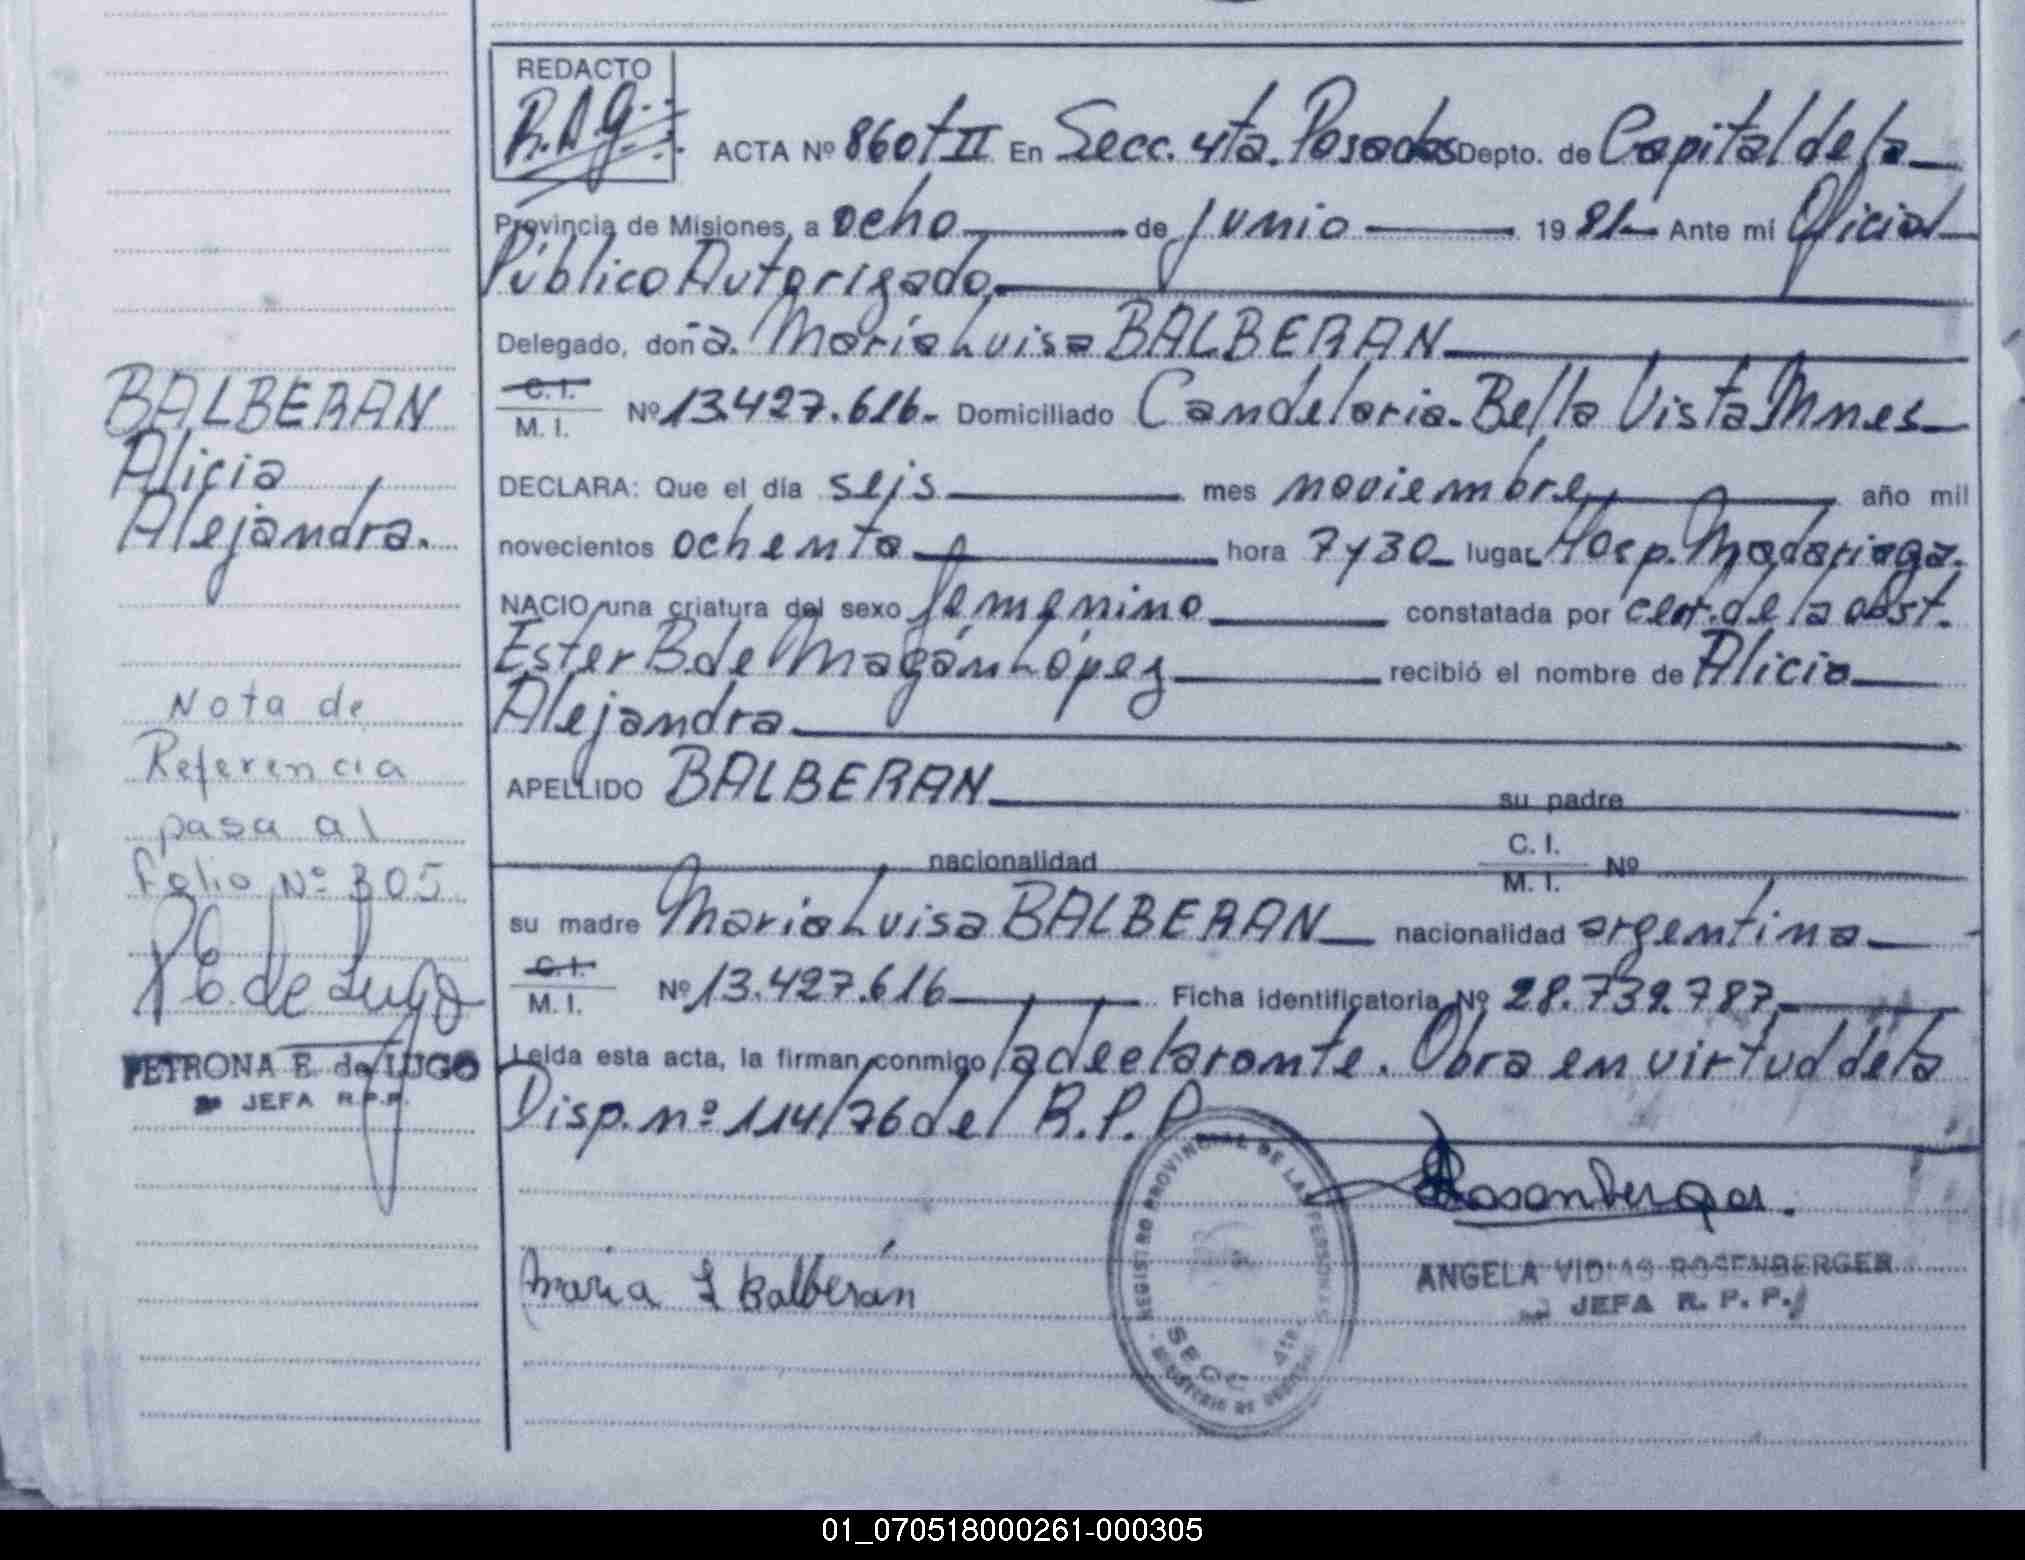 REDACTO
R.A.G.
ACTA Nº 860 t II En Secc. 4ta. Posadas Depto. de Capital de la
Provincia de Misiones, a ocho de junio 1981 Ante mi Oficial
Público Autorizado
Delegado, doña. María Luisa BALBERAN
C. I.
M. I. Nº 13.427.616. Domiciliado Candelaria. Bella Vista Mnes
DECLARA: Que el día seis mes noviembre año mil
novecientos ochenta hora 7 y 30 lugar Hosp. Madariaga.
NACIO una criatura del sexo femenino constatada por cert. de la obst.
Ester B. de Magán López recibió el nombre de Alicia
Alejandra
APELLIDO BALBERAN su padre
nacionalidad C. I.
M. I. Nº
su madre María Luisa BALBERAN nacionalidad argentina
C. I.
M. I. Nº 13.427.616 Ficha identificatoria Nº 28.739.787
Leida esta acta, la firman conmigo la declarante. Obra en virtud de la
Disp. nº 114/76 del R.P.P
BALBERAN
Alicia
Alejandra.
Nota de
Referencia
pasa al
folio Nº 305
P E. de Lugo
PETRONA E. de LUGO
JEFA R.P.P.
Maria L Balberán
REGISTRO PROVINCIAL DE LAS PERSONAS
SECC 4ta.
MINISTERIO DE
Rosenberger.
ANGELA VIDIAS ROSENBERGER
JEFA R. P. P.
01_070518000261-000305